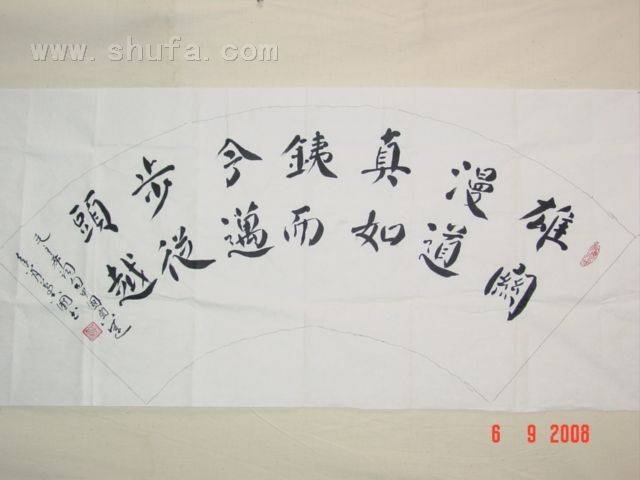 www.shufa.com
雄關
漫道
真如
銕而
今邁
步從
頭越
6 9 2008